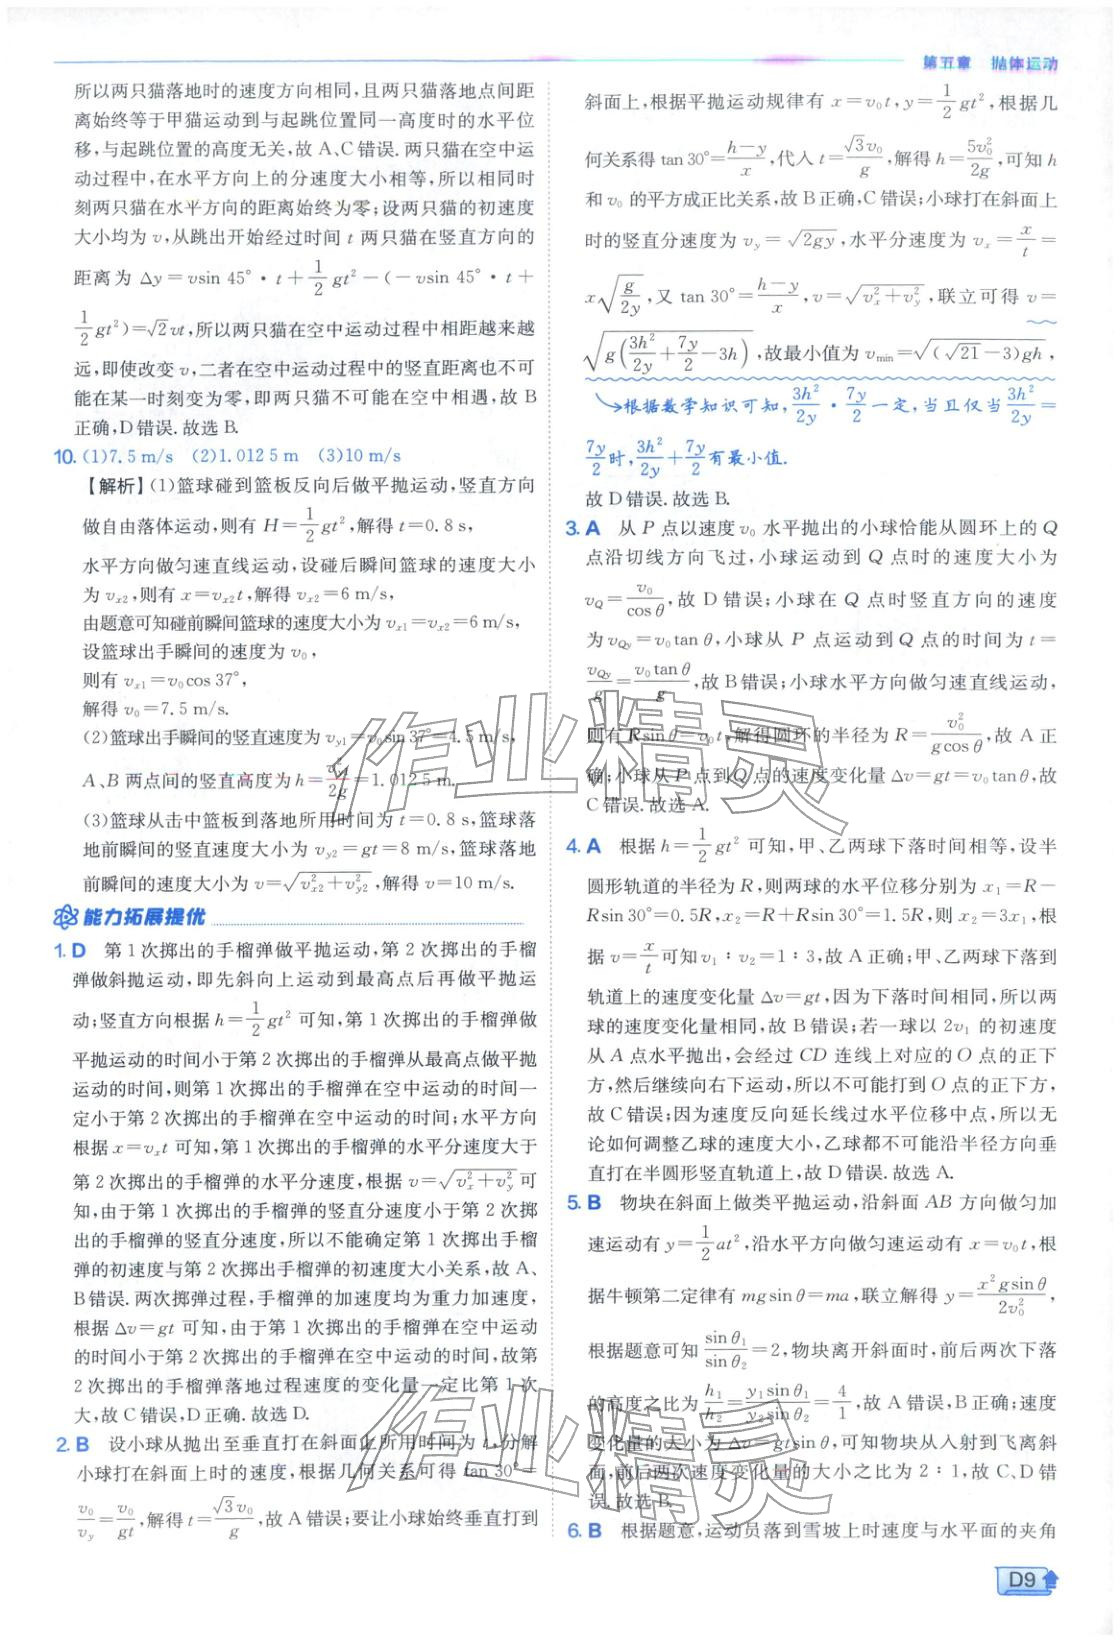 第五章 抛体运动
所以两只猫落地时的速度方向相同,且两只猫落地点间距
离始终等于甲猫运动到与起跳位置同一高度时的水平位
移,与起跳位置的高度无关,故 A、C 错误. 两只猫在空中运
动过程中,在水平方向上的分速度大小相等,所以相同时
刻两只猫在水平方向的距离始终为零;设两只猫的初速度
大小均为 v,从跳出开始经过时间 t 两只猫在竖直方向的
距离为 Δy=vsin 45°·t+\frac{1}{2}gt²-(-vsin 45°·t+
\frac{1}{2}gt²)=√2vt,所以两只猫在空中运动过程中相距越来越
远,即使改变 v,二者在空中运动过程中的竖直距离也不可
能在某一时刻变为零,即两只猫不可能在空中相遇,故 B
正确,D错误. 故选 B.
10. (1)7.5 m/s (2)1.012 5 m (3)10 m/s
【解析】(1)篮球碰到篮板反向后做平抛运动,竖直方向
做自由落体运动,则有 H=\frac{1}{2}gt²,解得 t=0.8 s,
水平方向做匀速直线运动,设碰后瞬间篮球的速度大小
为 vₓ₂,则有 x=vₓ₂t,解得 vₓ₂=6 m/s,
由题意可知碰前瞬间篮球的速度大小为 vₓ₁=vₓ₂=6 m/s,
设篮球出手瞬间的速度为 v₀,
则有 vₓ₁=v₀cos 37°,
解得 v₀=7.5 m/s.
(2)篮球出手瞬间的竖直速度为 v_{y1}=v₀sin 37°=4.5 m/s,
A、B 两点间的竖直高度为 h=\frac{v_{y1}^2}{2g}=1.012 5 m.
(3)篮球从击中篮板到落地所用时间为 t=0.8 s,篮球落
地前瞬间的竖直速度大小为 v_{y2}=gt=8 m/s,篮球落地
前瞬间的速度大小为 v=\sqrt{v_{x2}^2+v_{y2}^2},解得 v=10 m/s.
能力拓展提优
1. D 第 1 次掷出的手榴弹做平抛运动,第 2 次掷出的手榴
弹做斜抛运动,即先斜向上运动到最高点后再做平抛运
动;竖直方向根据 h=\frac{1}{2}gt² 可知,第 1 次掷出的手榴弹做
平抛运动的时间小于第 2 次掷出的手榴弹从最高点做平抛
运动的时间,则第 1 次掷出的手榴弹在空中运动的时间一
定小于第 2 次掷出的手榴弹在空中运动的时间;水平方向
根据 x=vₓt 可知,第 1 次掷出的手榴弹的水平分速度大于
第 2 次掷出的手榴弹的水平分速度,根据 v=\sqrt{v_x^2+v_y^2} 可
知,由于第 1 次掷出的手榴弹的竖直分速度小于第 2 次掷
出的手榴弹的竖直分速度,所以不能确定第 1 次掷出手榴
弹的初速度与第 2 次掷出手榴弹的初速度大小关系,故 A、
B错误. 两次掷弹过程,手榴弹的加速度均为重力加速度,
根据 Δv=gt 可知,由于第 1 次掷出的手榴弹在空中运动
的时间小于第 2 次掷出的手榴弹在空中运动的时间,故第
2 次掷出的手榴弹落地过程速度的变化量一定比第 1 次
大,故 C错误,D正确. 故选 D.
2. B 设小球从抛出至垂直打在斜面上所用时间为 t,分解
小球打在斜面上时的速度,根据几何关系可得 tan 30°=
\frac{v_0}{v_y}=\frac{v_0}{gt},解得 t=\frac{\sqrt{3}v_0}{g},故 A错误;要让小球始终垂直打到
斜面上,根据平抛运动规律有 x=v₀t,y=\frac{1}{2}gt²,根据几
何关系得 tan 30°=\frac{h-y}{x},代入 t=\frac{\sqrt{3}v_0}{g},解得 h=\frac{5v_0^2}{2g},可知 h
和 v₀ 的平方成正比关系,故 B正确,C错误;小球打在斜面上
时的竖直分速度为 v_y=\sqrt{2gy},水平分速度为 vₓ=\frac{x}{t}=
x\sqrt{\frac{g}{2y}},又 tan 30°=\frac{h-y}{x},v=\sqrt{v_x^2+v_y^2},联立可得 v=
\sqrt{g(\frac{3h^2}{2y}+\frac{7y}{2}-3h)},故最小值为 v_{min}=\sqrt{(\sqrt{21}-3)gh},
根据数学知识可知,\frac{3h^2}{2y}·\frac{7y}{2}一定,当且仅当\frac{3h^2}{2y}=
\frac{7y}{2}时,\frac{3h^2}{2y}+\frac{7y}{2}有最小值.
故 D错误. 故选 B.
3. A 从 P 点以速度 v₀ 水平抛出的小球恰能从圆环上的 Q
点沿切线方向飞过,小球运动到 Q 点时的速度大小为
v_Q=\frac{v_0}{cos θ},故 D 错误;小球在 Q 点时竖直方向的速度
为 v_{Qy}=v₀tan θ,小球从 P 点运动到 Q 点的时间为 t=
\frac{v_{Qy}}{g}=\frac{v_0tan θ}{g},故 B错误;小球水平方向做匀速直线运动,
则有 Rsin θ=v₀t,解得圆环的半径为 R=\frac{v_0^2}{gcos θ},故 A 正
确;小球从 P 点到 Q 点的速度变化量 Δv=gt=v₀tan θ,故
C错误. 故选 A.
4. A 根据 h=\frac{1}{2}gt² 可知,甲、乙两球下落时间相等,设半
圆形轨道的半径为 R,则两球的水平位移分别为 x₁=R-
Rsin 30°=0.5R,x₂=R+Rsin 30°=1.5R,则 x₂=3x₁,根
据 v=\frac{x}{t}可知 v₁:v₂=1:3,故 A正确;甲、乙两球下落到
轨道上的速度变化量 Δv=gt,因为下落时间相同,所以两
球的速度变化量相同,故 B错误;若一球以 2v₁ 的初速度
从 A 点水平抛出,会经过 CD 连线上对应的 O 点的正下
方,然后继续向右下运动,所以不可能打到 O 点的正下方,
故 C错误;因为速度反向延长线过水平位移中点,所以无
论如何调整乙球的速度大小,乙球都不可能沿半径方向垂
直打在半圆形竖直轨道上,故 D错误. 故选 A.
5. B 物块在斜面上做类平抛运动,沿斜面 AB 方向做匀加
速运动有 y=\frac{1}{2}at²,沿水平方向做匀速运动有 x=v₀t,根
据牛顿第二定律有 mgsin θ=ma,联立解得 y=\frac{x^2gsin θ}{2v_0^2},
根据题意可知\frac{sin θ_1}{sin θ_2}=2,物块离开斜面时,前后两次下落
的高度之比为\frac{h_1}{h_2}=\frac{y_1sin θ_1}{y_2sin θ_2}=\frac{4}{1},故 A错误,B正确;速度
变化量的大小为 Δv=gtsin θ,可知物块从入射到飞离斜
面,前后两次速度变化量的大小之比为 2:1,故 C、D错
误. 故选 B.
6. B 根据题意,运动员落到雪坡上时速度与水平面的夹角
D9
作业精灵
作业精灵